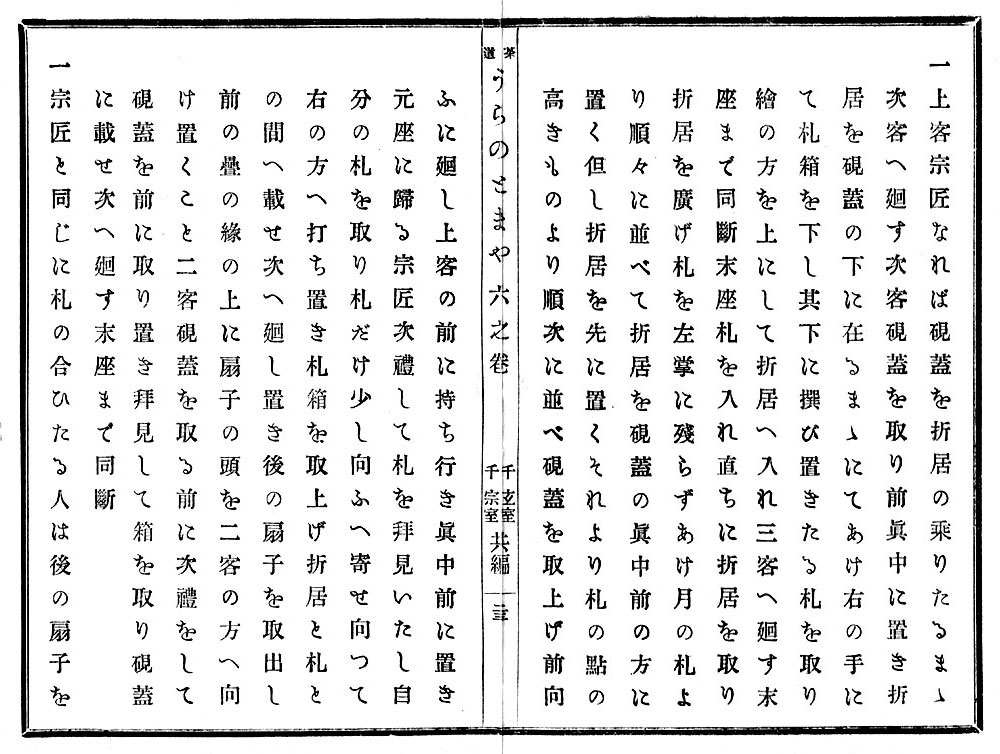 一上客宗匠なれば硯蓋を折居の乘りたるまゝ
次客へ廻す次客硯蓋を取り前眞中に置き折
居を硯蓋の下に在るまゝにてあけ右の手に
て札箱を下し其下に撰び置きたる札を取り
繪の方を上にして折居へ入れ三客へ廻す末
座まで同斷末座札を入れ直ちに折居を取り
折居を廣げ札を左掌に殘らずあけ月の札よ
り順々に並べて折居を硯蓋の眞中前の方に
置く但し折居を先に置くそれより札の點の
高きものより順次に並べ硯蓋を取上げ前向
茶道 うらのとまや 六之卷 千玄室 千宗室 共編 三
ふに廻し上客の前に持ち行き眞中前に置き
元座に歸る宗匠次禮して札を拜見いたし自
分の札を取り札だけ少し向ふへ寄せ向つて
右の方へ打ち置き札箱を取上げ折居と札と
の間へ載せ次へ廻し置き後の扇子を取出し
前の疊の緣の上に扇子の頭を二客の方へ向
け置くこと二客硯蓋を取る前に次禮をして
硯蓋を前に取り置き拜見して箱を取り硯蓋
に載せ次へ廻す末座まで同斷
一宗匠と同じに札の合ひたる人は後の扇子を